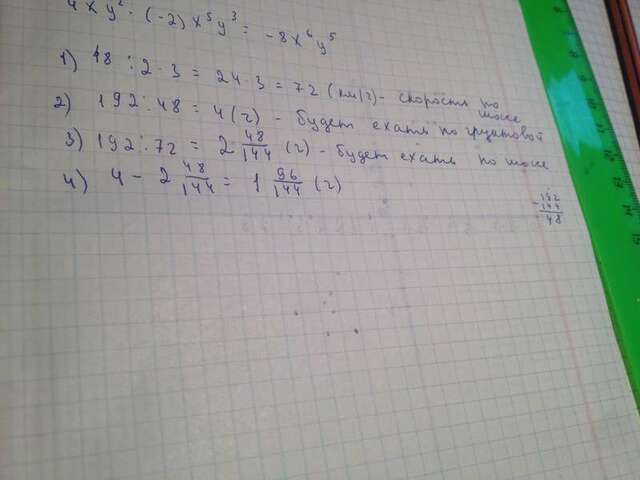 4xy². (-2)x⁵y³ = -8x⁶y⁵
1) 48 : 2 · 3 = 24 · 3 = 72 (км/г) - скорость по шоссе
2) 192 : 48 = 4 (г) - будет ехать по грунтовой
3) 192 : 72 = 2 48/144 (г) - будет ехать по шоссе
4) 4 - 2 48/144 = 1 96/144 (г)
192
- 144
48